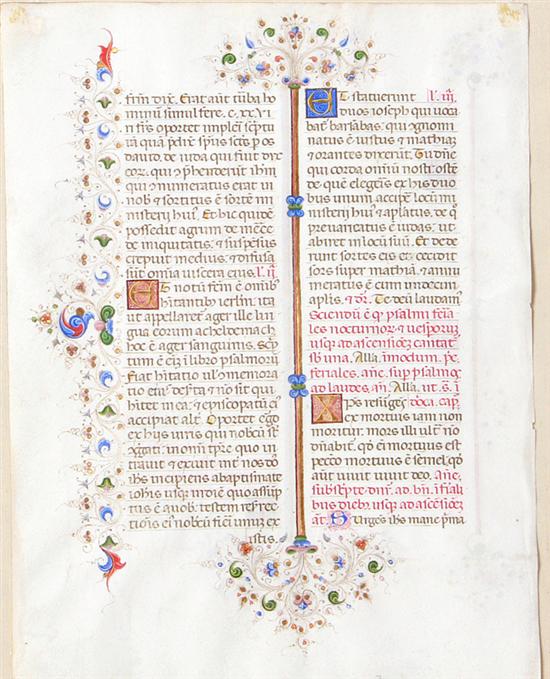 frm̄ dix̄. Erat aūt tuba ho
minū simul fere. c. xx. vi
ri frēs oportet impleri sc̄ptu
rā quā p̄dix̄ sp̄us sc̄ts p os
davit de iuda qui fuit dux
eoꝝ. qui ꝯp̄henderūt ihm̄
qui ꝯnumeratus erat in
nob̄ ⁊ sortitus ē sortē mi
nisterij huiꝰ. Et hic quidē
possedit agrum de mēcē
de iniquitatis. ⁊ suspēsus
crepuit medius. ⁊ diffusa
sūt omīa viscera eius. l. ij.
Et notū fcm̄ ē omīb
hītantibꝰ ierlm̄. ita
ut appellaret ager ille lin
gua eorum acheldemac
hoc ē ager sanguinis. Scp̄
tum ē ei in libro psalmorū
Fiat hītatio illiꝰ
eiꝰ. ⁊ nō sit qui
hītet in ea. ⁊ episcopatū eiꝰ
accipiat alt̄. Oportet ergo
ex hijs viris qui nobcū st̄
ꝯgati. in omī tp̄re quo in
travit ⁊ exivit int̄ nos dn̄s
ihs incipiens a baptismate
iohis usqꝫ in diē qua assūp
tus ē a nob̄. testem resur
rectionis eiꝰ nobcū fieri unuꝫ ex
istis.
Et statuerunt l. iij.
duos ioseph qui voca
bat̄ barsabas. qui ꝯgnomi
natus ē iustus ⁊ mathiā
⁊ orantes dixerūt. Tu dn̄e
qui corda omīū nosti oste
de. quē elegeris ex his duo
bus unum. accipe locū mi
nisterij huiꝰ ⁊ aplatus. de q̄
prevaricatus ē iudas. ut
abiret in locū suū. Et dede
runt sortes eis. et cecidit
sors super mathiā. ⁊ annu
meratus ē cum undecim
aplis. Te deū laudam̄.
Sciendū ē qꝫ psalmi feria
les nocturnoꝝ. ⁊ vesperoꝝ
usqꝫ ad ascensiōeꝫ cantāt̄
sb una. Alla. in modum. p̄e.
feriales. ane. sup psalmoꝫ
ad laudes. an̄. Alla. ut. s.
Xps resurgēs. capl
ex mortuis iam non
moritur. mors illi ult̄ nō
dnabit̄. qd̄ ei mortuus est
peccō mortuus ē semel. qd̄
aut vivit vivit deo. Ane.
subscpte. dnr̄. ad. bn̄. i ferīali
bus dieb. usqꝫ ad ascensiōeꝫ
an̄. Surgens ihs mane p̄ma